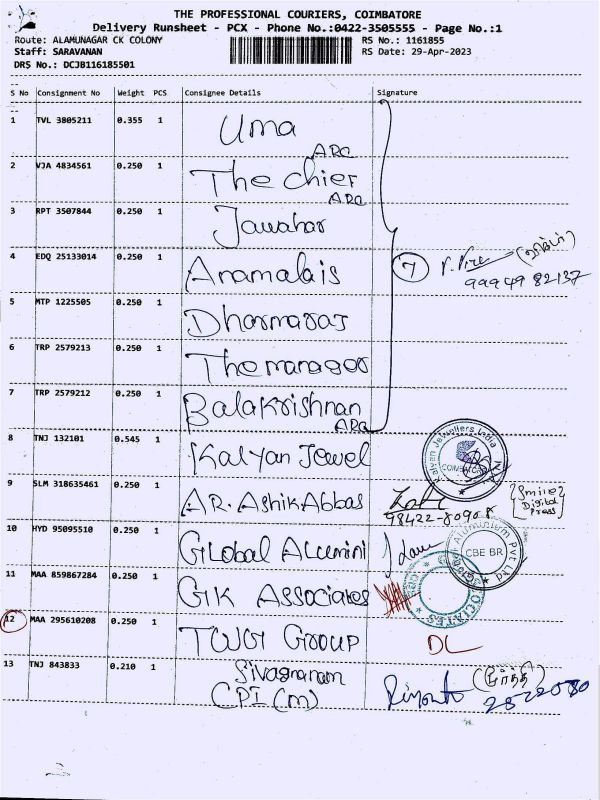 THE PROFESSIONAL COURIERS, COIMBATORE
Delivery Runsheet - PCX - Phone No.:0422-3505555 - Page No.:1
Route: ALAMUNAGAR CK COLONY RS No.: 1161855
Staff: SARAVANAN RS Date: 29-Apr-2023
DRS No.: DCJB116185501
S No Consignment No Weight PCS Consignee Details Signature
1 TVL 3805211 0.355 1 Uma
ARC
2 VJA 4834561 0.250 1 The chief
ARC
3 RPT 3507844 0.250 1 Jawahar
4 EDQ 25133014 0.250 1 Anamalais 7 (நம்பர்)
99949 82137
5 MTP 1225505 0.250 1 Dharmaraj
6 TRP 2579213 0.250 1 The manager
7 TRP 2579212 0.250 1 Balakrishnan
ARC
8 TNJ 132101 0.545 1 Kalyan Jewel Kalyan Jewellers India COIMBATORE
9 SLM 318635461 0.250 1 AR. Ashik Abbas 98422-80908 Smile Digital Press
10 HYD 95095510 0.250 1 Global Alumini Global Aluminium Pvt Ltd CBE BR
11 MAA 859867284 0.250 1 GK Associates
12 MAA 295610208 0.250 1 TWG Group DL
13 TNJ 843833 0.210 1 Sivagnanam
CPI (m)